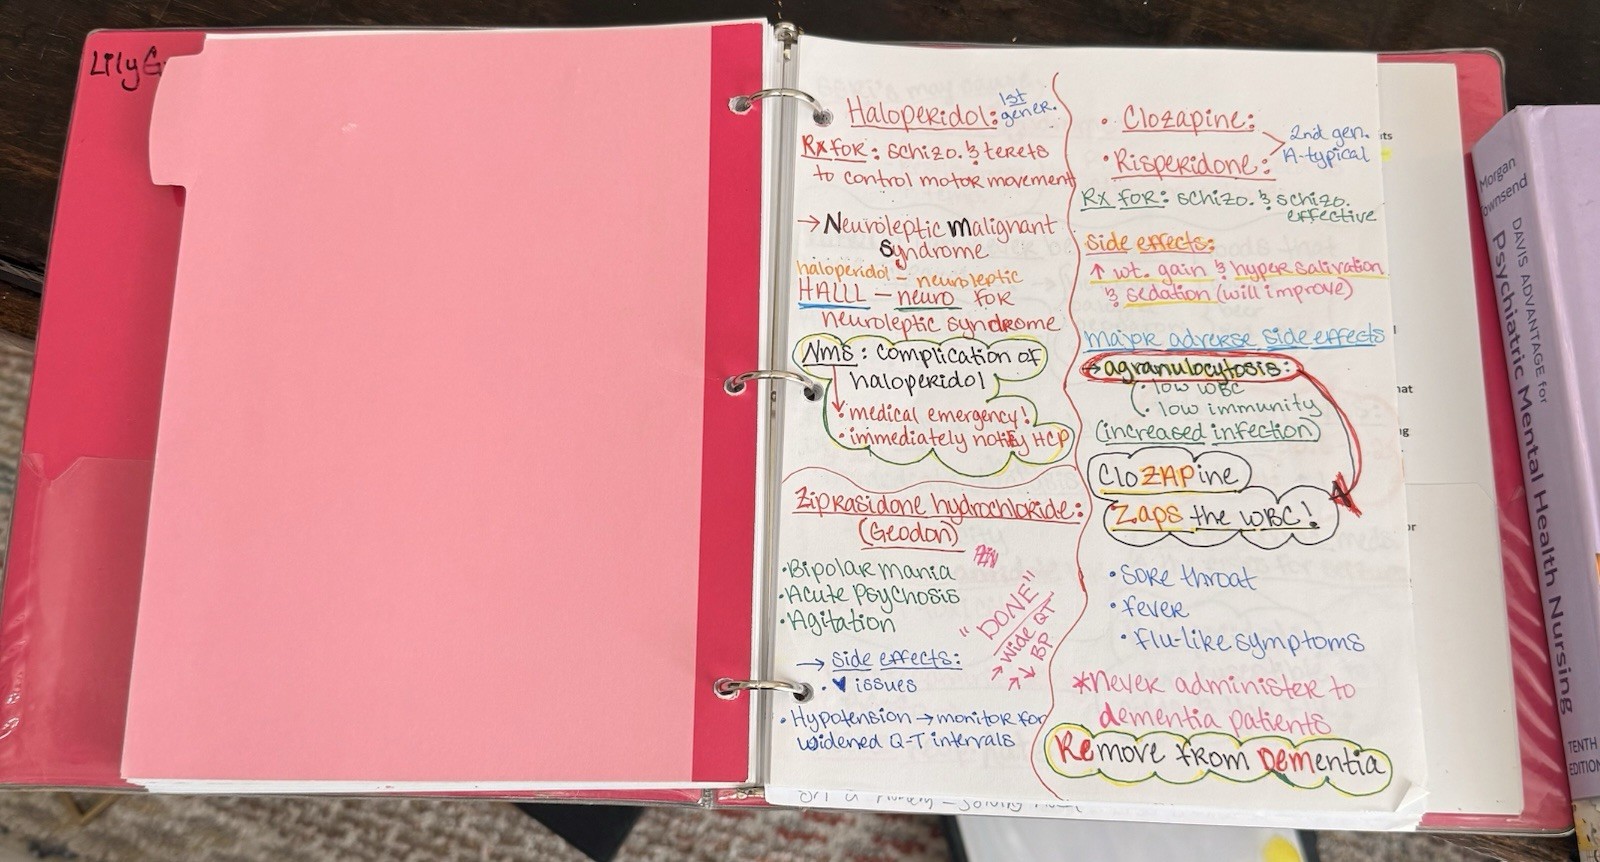 Lily G
Haloperidol: 1st
gener.
Rx for: schizo. & terets
to control motor movement
→ Neuroleptic Malignant
Syndrome
haloperidol – neuroleptic
HALLL – neuro for
neuroleptic syndrome
Nms: complication of
haloperidol
• medical emergency!
• immediately notify HCP
Ziprasidone hydrochloride:
(Geodon)
• Bipolar mania
• Acute Psychosis
• Agitation
"DONE"
→ wide QT
→ ↓ BP
→ side effects:
• ♥ issues
• Hypotension → monitor for
widened Q-T intervals
• Clozapine:
• Risperidone:
2nd gen.
A-typical
Rx for: schizo. & schizo.
effective
side effects:
↑ wt. gain & hyper salivation
& sedation (will improve)
major adverse side effects
→ agranulocytosis:
• low WBC
• low immunity
(increased infection)
CloZAPine
Zaps the WBC!
• sore throat
• fever
• flu-like symptoms
*Never administer to
dementia patients
Remove from DEMentia
Morgan
Townsend
DAVIS ADVANTAGE for
Psychiatric Mental Health Nursing
TENTH
EDITION